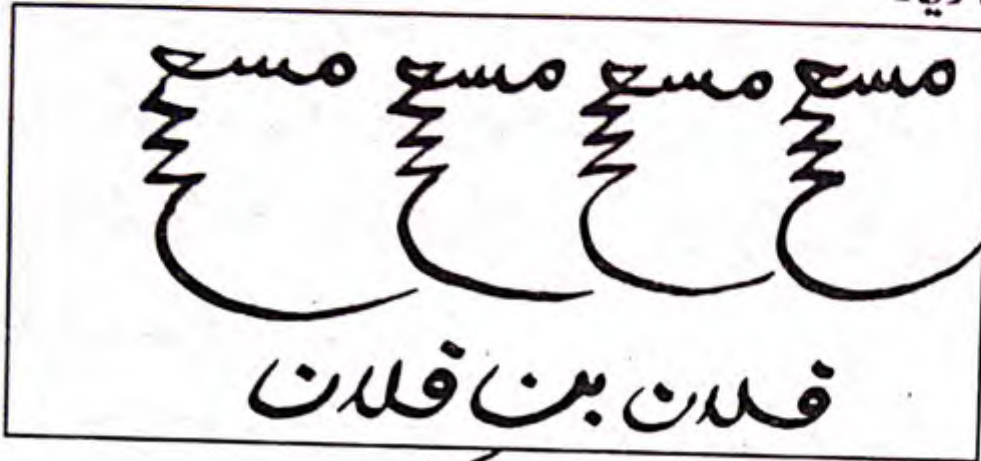 مسع مسع مسع مسع
فلان بن فلان